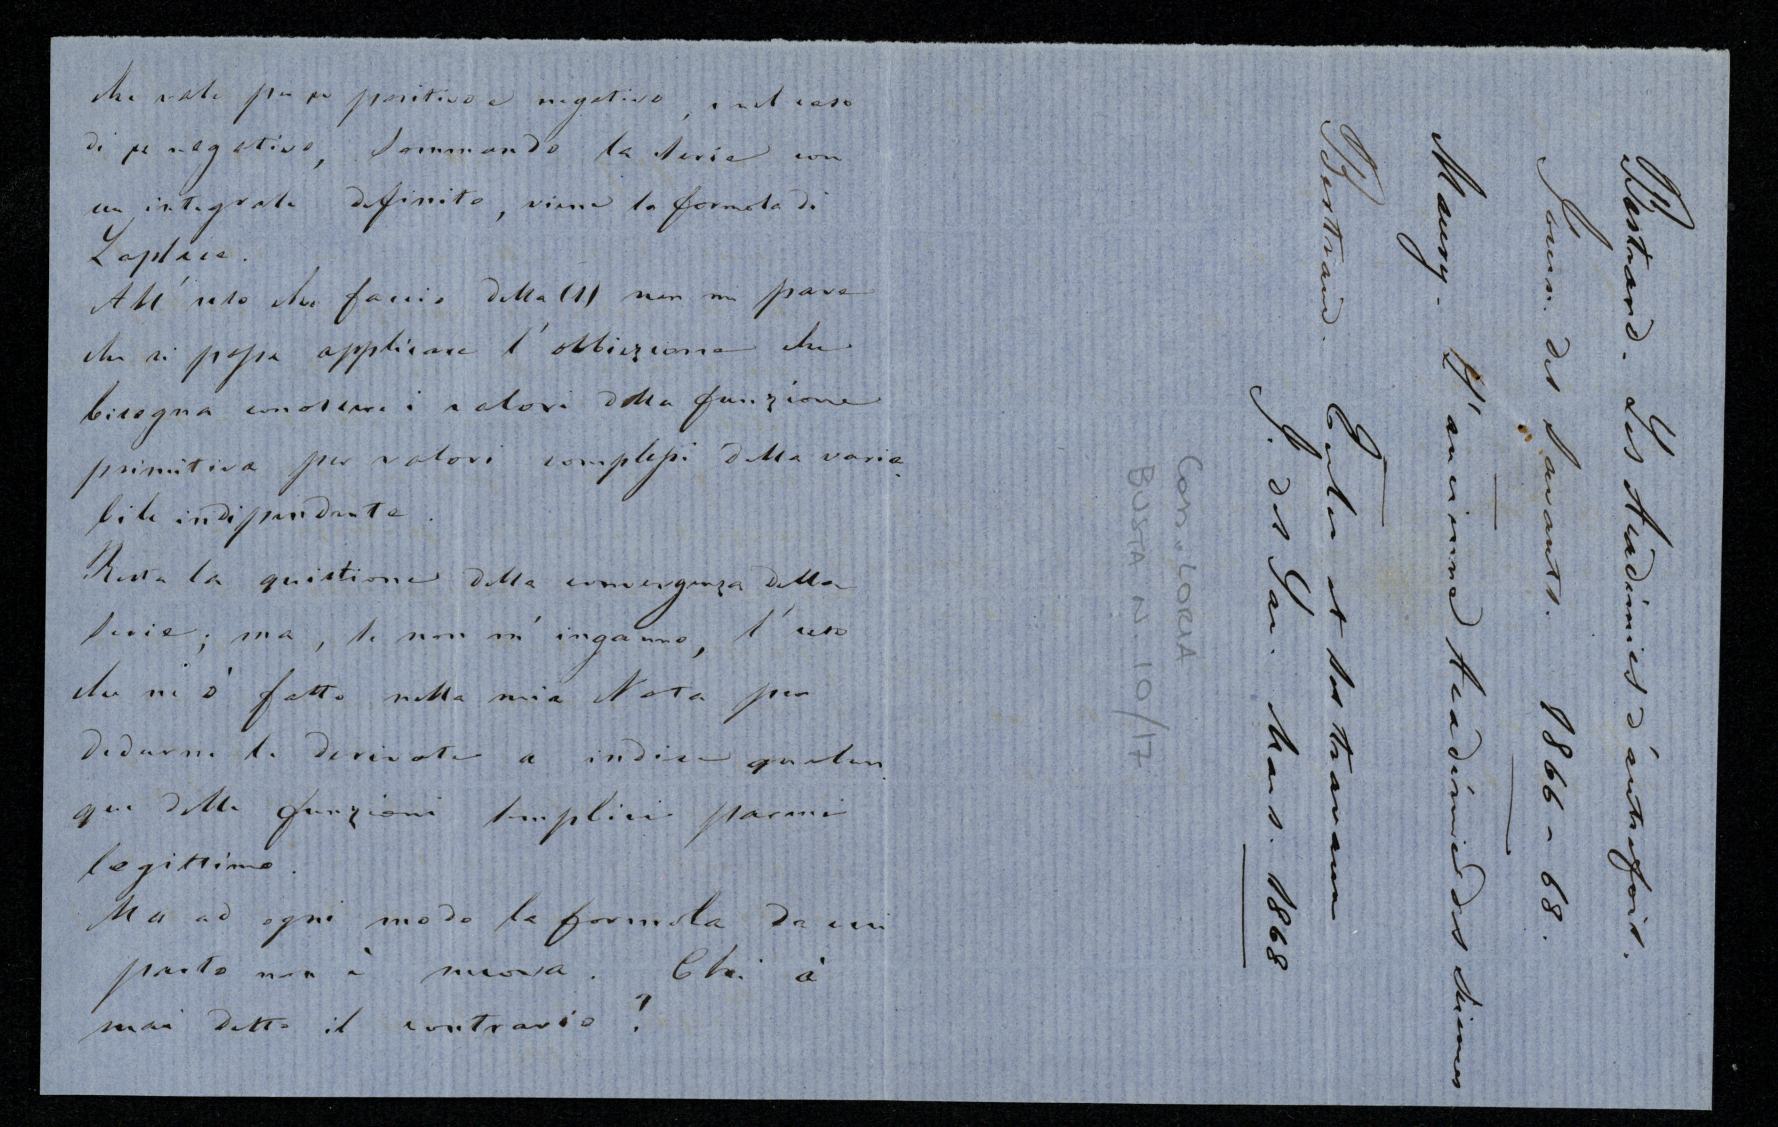 che vale per μ positivo e negativo, e nel caso
di μ negativo, sommando la serie con
un integrale definito, viene la formola di
Laplace.
All'uso che faccio della (1) non mi pare
che si possa applicare l'obbiezione che
bisogna conoscere i valori della funzione
primitiva per valori complessi della varia-
bile indipendente.
Resta la quistione della convergenza della
serie; ma, se non m'inganno, l'uso
che ne ò fatto nella mia Nota per
dedurne le derivate a indice qualun
que delle funzioni semplici parmi
legittimo.
Ma ad ogni modo la formola da cui
parto non è nuova. Chi à
mai detto il contrario?
Bertrand. Les Académies d'autrefois.
Journ. des Savants. 1866-68.
Maury. L'ancienne Académie des sciences
Bertrand. Euler et ses travaux
J. des Sav. Mars. 1868
Corr. LORIA
BUSTA N. 10/17